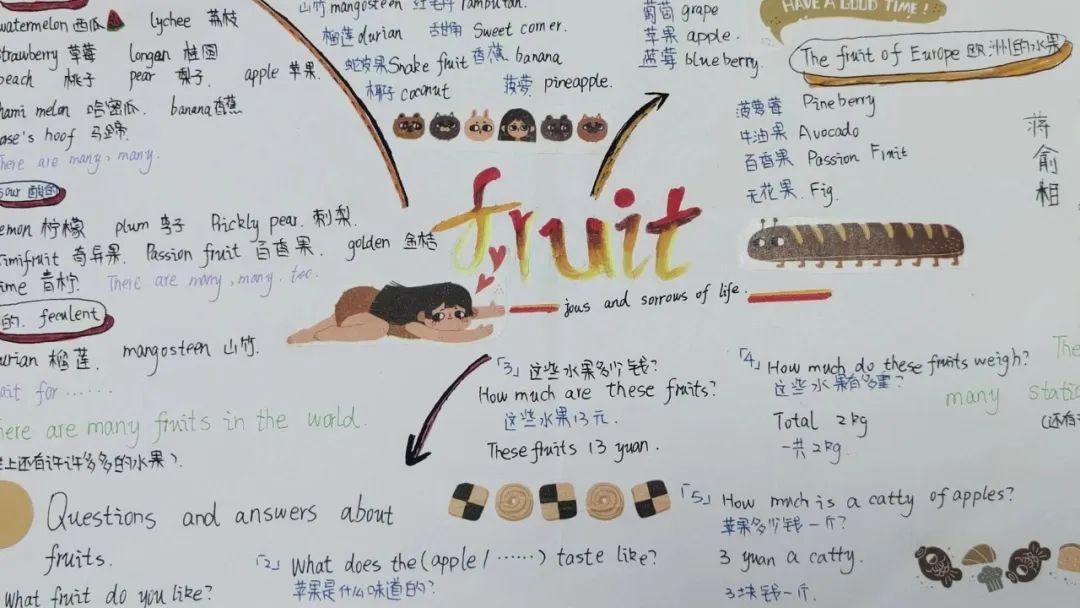 watermelon 西瓜 lychee 荔枝
strawberry 草莓 longan 桂圆
peach 桃子 pear 梨子 apple 苹果.
hami melon 哈密瓜. banana香蕉
ase's hoof 马蹄.
There are many, many.
sour 酸的
lemon 柠檬 plum 李子 Prickly pear. 刺梨.
kimifruit 奇异果. Passion fruit 百香果. golden 金桔
lime 青柠. There are many, many. tec.
的. feculent
durian 榴莲. mangosteen 山竹.
wait for ······
There are many fruits in the world.
世上还有许许多多的水果).
山竹 mangosteen 红毛丹 rambutan.
榴莲 durian 甜角 Sweet corner.
蛇皮果 Snake fruit 香蕉 banana
椰子 coconut 菠萝 pineapple.
葡萄 grape
苹果 apple.
蓝莓 blueberry.
HAVE A GOOD TIME!
The fruit of Europe 欧洲的水果
菠萝莓 Pineberry
牛油果 Avocado
百香果 Passion Fruit
无花果. Fig.
蒋俞相
fruit
jous and sorrows of life.
「3」这些水果多少钱?
How much are these fruits?
这些水果13元.
These fruits 13 yuan.
「4」How much do these fruits weigh?
这些水果有多重?
Total 2kg
一共2kg.
The
many static
(还有
Questions and answers about
fruits.
what fruit do you like?
「2」What does the (apple / ······) taste like?
苹果是什么味道的?
「5」How much is a catty of apples?
苹果多少钱一斤?
3 yuan a catty.
3块钱一斤.